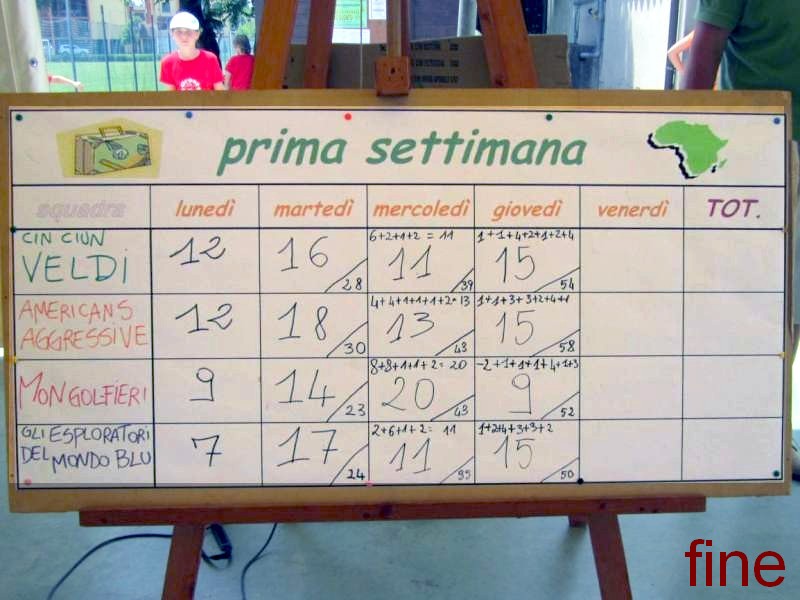 prima settimana
squadra lunedì martedì mercoledì giovedì venerdì TOT.
CIN CIUN VELDI
12
16
28
6+2+1+2 = 11
11
39
1+1+4+2+1+2+4
15
54
AMERICANS AGGRESSIVE
12
18
30
4+4+1+1+1+2=13
13
43
1+1+3+3+2+4+1
15
58
MONGOLFIERI
9
14
23
8+8+1+1+2= 20
20
43
-2+1+1+1+4+1+3
9
52
GLI ESPLORATORI
DEL MONDO BLU
7
17
24
2+6+1+2= 11
11
35
1+2+4+3+3+2
15
50
fine